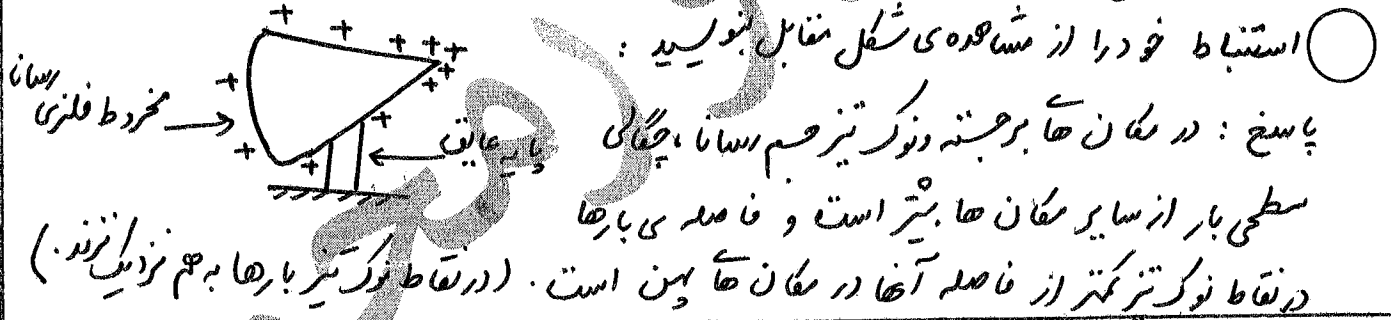 استنباط خود را از مشاهده ی شکل مقابل بنویسید :
پاسخ : در مکان های برجسته و نوک تیز جسم رسانا ، چگالی
سطحی بار از سایر مکان ها بیشتر است و فاصله ی بارها
در نقاط نوک تیز کمتر از فاصله آنها در مکان های پهن است . (در نقاط نوک تیز بارها به هم نزدیک ترند .)
مخروط فلزی رسانا
پایه عایق
+ + + + + + + + + + + +